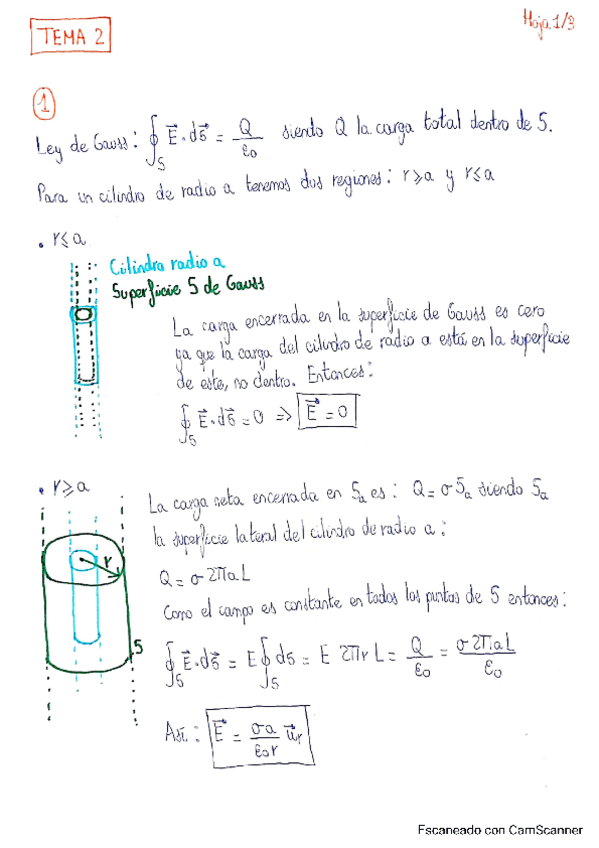 Hoja 1/3
TEMA 2
1
Ley de Gauss: ∮_S E⃗·dS⃗ = Q/ε₀ siendo Q la carga total dentro de S.
Para un cilindro de radio a tenemos dos regiones: r⩾a y r⩽a
• r⩽a
Cilindro radio a
Superficie S de Gauss
La carga encerrada en la superficie de Gauss es cero
ya que la carga del cilindro de radio a está en la superficie
de este, no dentro. Entonces:
∮_S E⃗·dS⃗ = 0 => E⃗ = 0
• r⩾a
La carga neta encerrada en Sa es: Q = σSa siendo Sa
la superficie lateral del cilindro de radio a:
Q = σ2πaL
Como el campo es constante en todos los puntos de S entonces:
r
S
∮_S E⃗·dS⃗ = E∮_S dS = E 2πrL = Q/ε₀ = σ2πaL/ε₀
Así: E⃗ = σa/ε₀r u⃗r
Escaneado con CamScanner